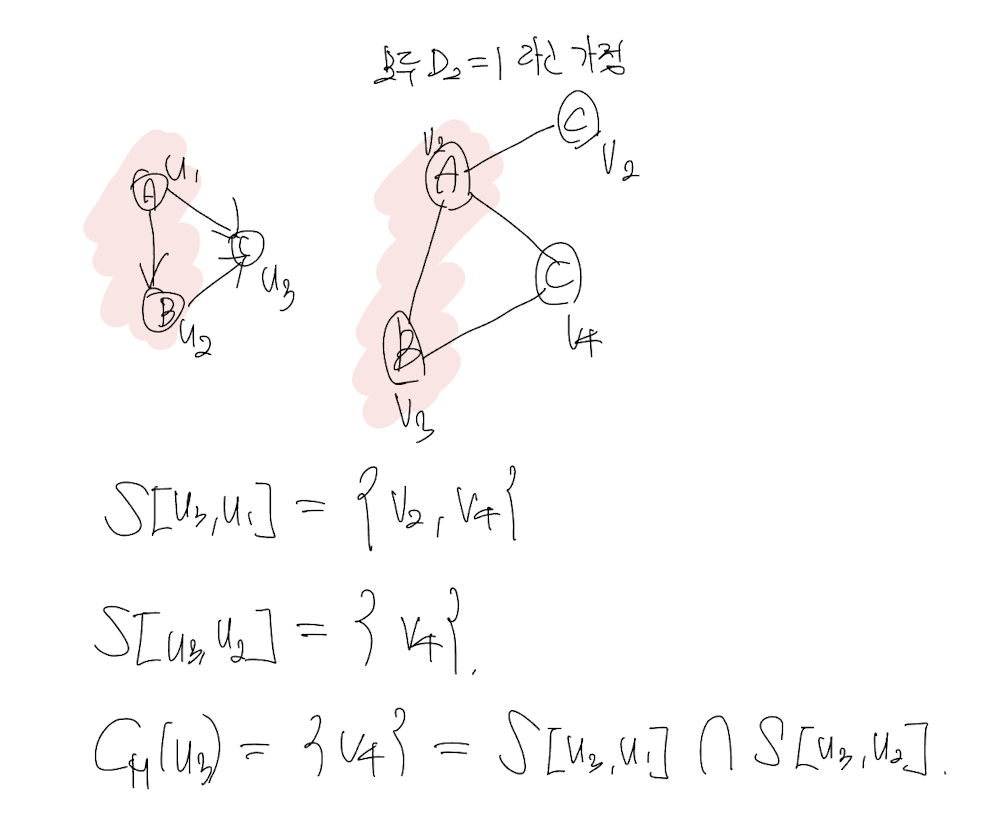 모두 D₂ = 1 라는 가정
A u₁
B u₂
C u₃
v₂ A
C v₂
C v₄
B v₃
S[u₃, u₁] = { v₂, v₄ }
S[u₃, u₂] = { v₄ }.
C_M(u₃) = { v₄ } = S[u₃, u₁] ∩ S[u₃, u₂].